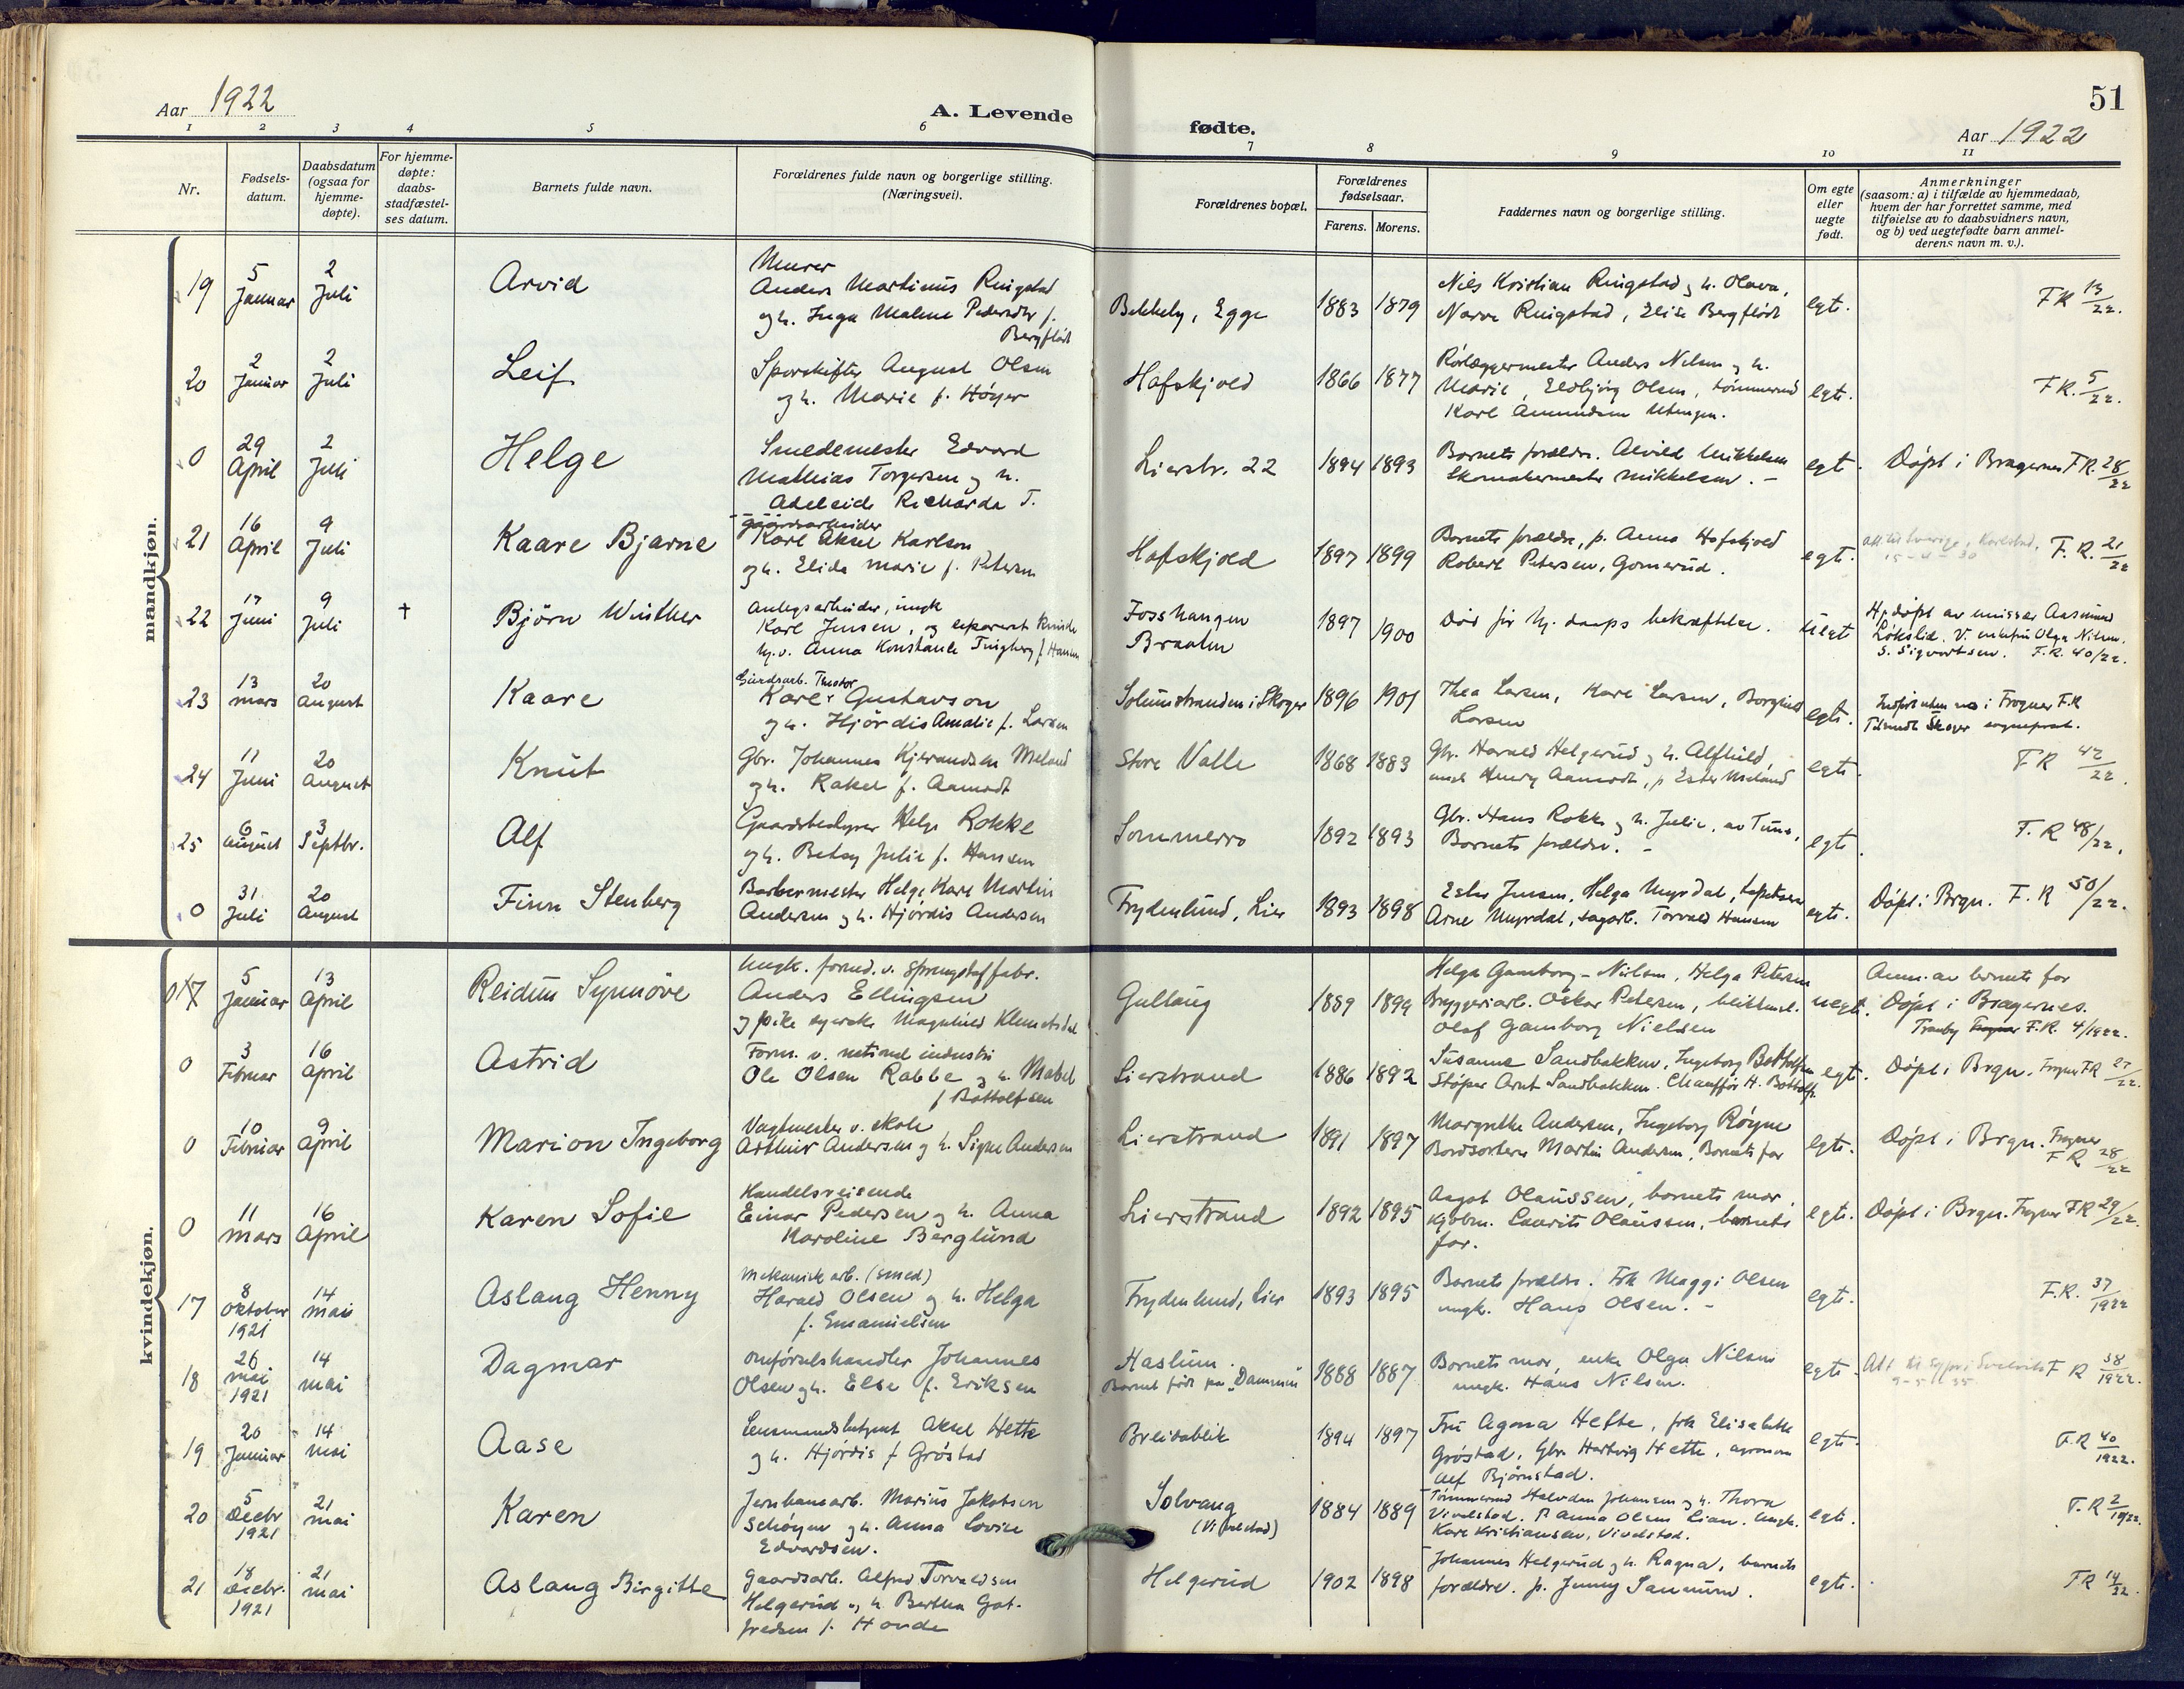 51
Aar 1922
A. Levende
fødte.
Aar 1922
1 2 3 4 5 6 7 8 9 10 11
Nr.
Fødsels-
datum.
Daabsdatum
(ogsaa for
hjemme-
døpte).
For hjemme-
døpte:
daabs-
stadfæstel-
ses datum.
Barnets fulde navn.
Forældrenes fulde navn og borgerlige stilling.
(Næringsvei).
Forældrenes bopæl.
Forældrenes
fødselsaar.
Farens. Morens.
Faddernes navn og borgerlige stilling.
Om egte
eller
uegte
født.
Anmerkninger
(saasom: a) i tilfælde av hjemmedaab,
hvem der har forrettet samme, med
tilføielse av to daabsvidners navn,
og b) ved uegtefødte barn anmel-
derens navn m. v.).
mandkjøn.
19
5
Januar
2
Juli
Arvid
Murer
Anders Martinius Ringstad
og h. Inga Malene Pedersdtr f.
Bergflødt
Bekkely, Egge
1883 1879
Nils Kristian Ringstad og h. Olava,
Narve Ringstad, Elise Bergflødt
egte.
FR 13/22.
20
2
Januar
2
Juli
Leif
Sporskifter August Olsen
og h. Marie f. Höyer
Hafskjold
1866 1877
Rørlæggermester Anders Nilsen og h.
Marie, Eldbjørg Olsen, tømmermd
Karl Amundsen
egte.
FR. 5/22.
0
29
April
2
Juli
Helge
Smedemester Edvard
Mathias Torgersen og h.
Adeleide Richarda T.
Lierstr. 22
1894 1893
Barnets forældre. Alvild Mikkelsen
Skomakermester Mikkelsen. -
egte.
Døpt i Bragernes FR. 28/22
21
16
April
9
Juli
Kaare Bjarne
Gaardsarbeider
Karl Aksel Karlson
og h. Elida Marie f. Petersen
Hafskjold
1897 1899
Barnets forældre, p. Anna Hafskjold
Robert Petersen, Gomerud.
egte.
Att til Sverige, Karlstad,
F. R. 21/22
22
17
Juni
9
Juli
†
Björn Winther
Anlegsarbeider, ungk
Karl Jensen, og separert kvinde
Anna Konstanse Tingberg f Hansen
Fosshaugen
Braaten
1897 1900
Död för hj. daaps bekræftelse.
uegte
Hj. døpt av emissær Aasmund
Løkslid. V. enkefru Olga Nilsen.
S. Sigvartsen. F.R. 40/22.
23
13
mars
20
august
Kaare
Gaardsarb. Theodor
Karl Gustavson
og h. Hjördis Amalie f. Larsen
Solumstranden i Skoger
1896 1901
Thea Larsen, Kare Larsen, Borghild
Larsen
egte.
Indført uten no i Frogner F.R
Tilmeldt Skoger sogneprest.
24
11
Juni
20
August
Knut
Gbr. Johannes Kjerandsen Meland
og h. Rakel f. Aamodt
Store Valle
1868 1883
Gbr. Harald Helgerud og h. Alfhild,
ungk Henry Aamodt, p Ester Meland
egte.
FR 42/22.
25
6
august
3
Septbr.
Alf
Gaardsbestyrer Helge Rokke
og h. Betsy Julie f. Hansen
Sommerro
1892 1893
Gbr. Hans Rokke og h. Julie, av Tune,
Barnets forældre. -
egte.
F. R 48/22.
0
31
Juli
20
August
Finn Stenberg
Barbermester Helge Karl Martin
Andersen og h. Hjördis Andersen
Frydenlund, Lier
1893 1898
Ester Jensen, Helga Myrdal, tapetserer
Arne Myrdal, sagarb. Torvald Hansen
egte.
Døpt i Brgn. F. R 50/22.
kvindekjøn.
0
5
Januar
13
April
Reidun Synnöve
Ungk. formd. v. sprengstoffabr.
Anders Ellingsen
og pike syerske Magnhild Klemetsdal
Gullaug
1889 1899
Helga Gamborg-Nilsen, Helga Petersen
Bryggeriarb. Oskar Petersen,
Olaf Gamborg Nielsen
uegte.
Anm. av barnets far
Døpt i Bragernes.
Tranby F.R. 4/1922.
0
3
Februar
16
April
Astrid
Form. v. netind industri
Ole Olsen Rabbe og h. Mabel
f Bottolfsen
Lierstrand
1886 1892
Susanne Sandbakken, Ingeborg Bottolfsen
Støper Arnt Sandbakken. Chaufför H. Bottolfs.
egte.
Døpt i Brgn. Frogner FR 27/22.
0
10
Februar
9
April
Marion Ingeborg
Vagtmester v. skole
Arthur Andersen og h. Signe Andersen
Lierstrand
1891 1897
Margrethe Andersen, Ingeborg Røyne
Bordsorterer Martin Andersen, Barnets far
egte.
Døpt i Brgn. Frogner
F R 28/22
0
11
mars
16
April
Karen Sofie
Handelsreisende
Einar Pedersen og h. Anna
Karoline Berglund
Lierstrand
1892 1895
Aagot Olaussen, barnets mor,
Kjøbm. Laurits Olaussen, barnets
far.
egte.
Døpt i Brgn. Frogner FR 29/22.
17
8
Oktober
1921
14
mai
Aslaug Henny
Mekanisk arb. (smed)
Harald Olsen og h. Helga
f. Emanuelsen
Frydenlund, Lier
1893 1895
Barnets forældre. Frk Maggi Olsen
ungk. Hans Olsen. -
egte.
F.R. 37/1922
18
26
mai
1921
14
mai
Dagmar
Johannes
Olsen og h. Else f. Eriksen
Haslum.
Barnet född paa "Dammen"
1888 1887
Barnets mor, enke Olga Nilsen
ungk. Hans Nilsen.
egte.
F R 38/1922.
19
20
Januar
14
mai
Aase
Lensmandsbetjent Aksel Hette
og h. Hjördis f Gröstad
Breidablik
1894 1897
Fru Agona Hefte, frk Elisabeth
Gröstad, Gbr. Hartvig Hette, agronom
Alf Björnstad.
egte.
F.R 40/1922.
20
5
Decbr
1921
21
mai
Karen
Jernbanearb. Marius Jakobsen
Schöyen og h. Anna Lovise
Edvardsen.
Solvang
(Vivelstad)
1884 1889
Tømmermd Halvdan Johansen og h. Thora
Vivelstad. P Anna Olsen Lian. Ungk.
Kare Kristiansen, Vivelstad.
egte.
F. R 2/1922.
21
18
Decbr.
1921
21
mai
Aslaug Birgitte
Gaardsarb. Alfred Torvaldsen
Helgerud og h. Berthea Got-
fredsen f. Hovde
Helgerud
1902 1898
Johannes Helgerud og h. Ragna, barnets
forældre. p. Jenny Sammerud.
egte.
FR 14/22.